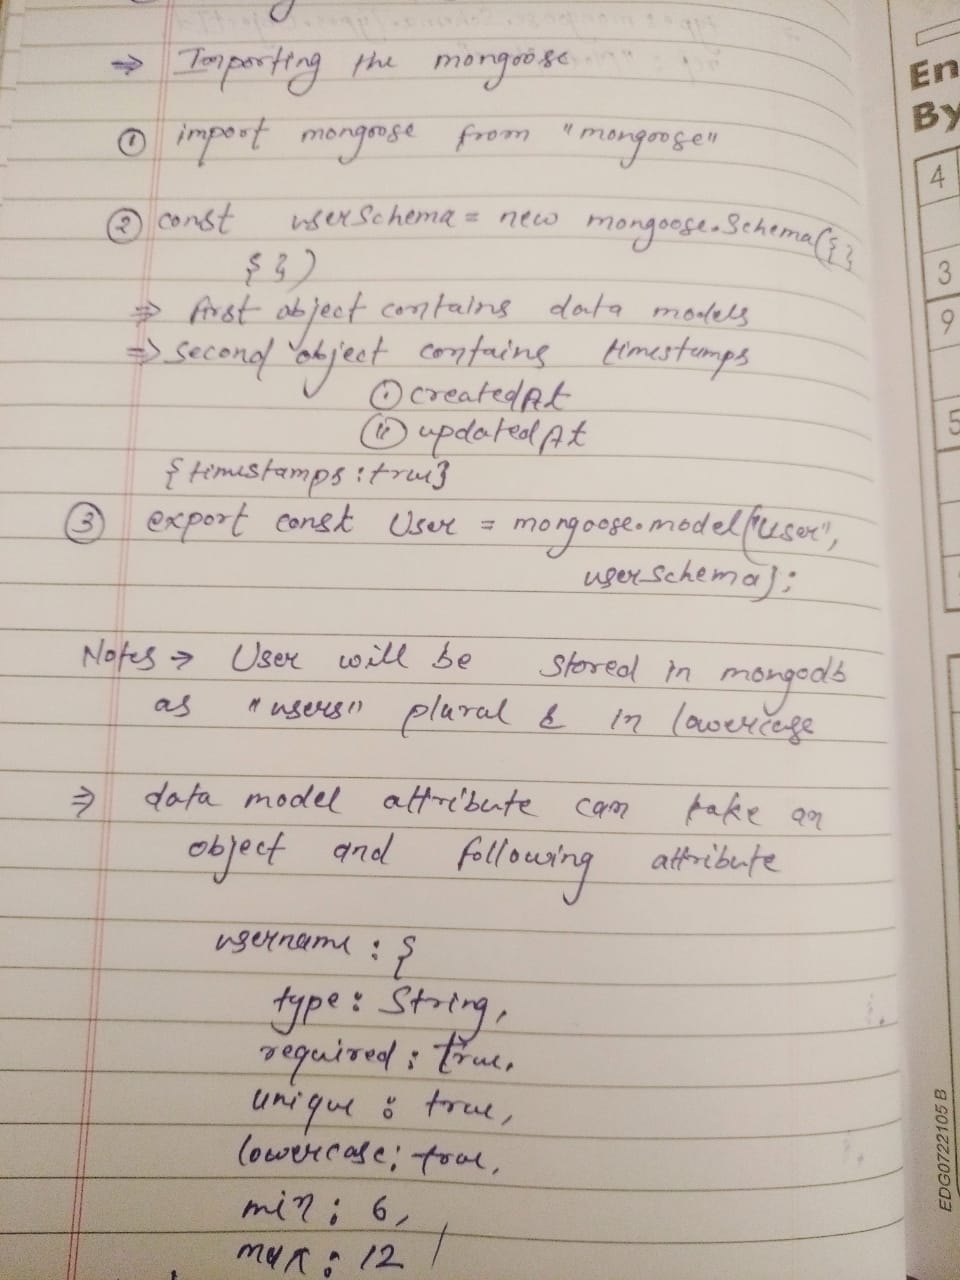 ⇒ Importing the mongoose
① import mongoose from "mongoose"
② const userSchema = new mongoose.Schema({}
{})
⇒ first object contains data models
⇒ second object contains timestamps
① createdAt
(ii) updatedAt
{timestamps: true}
③ export const User = mongoose.model("User",
userSchema);
Notes → User will be stored in mongodb
as "users" plural & in lowercase
⇒ data model attribute can take an
object and following attribute
username : {
type: String,
required: true,
unique: true,
lowercase: true,
min: 6,
max: 12
En
By
4
3
9
5
EDG0722105 B